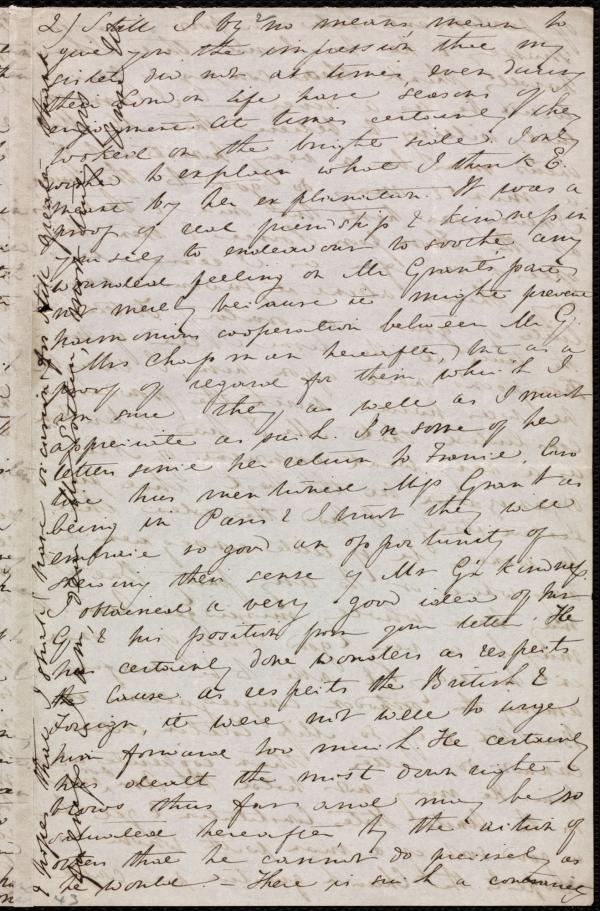 2) Still I by no means mean to
give you the impression that my
sisters did not at times, even during
their London life have seasons of
enjoyment. At times certainly they
looked on the bright side. I only
wished to explain what I thank E.
meant by her explanation. It was a
proof of real friendship & kindness in
yourself to endeavour to soothe any
wounded feeling on Mr Grant's part
not merely because it might prevent
harmonious cooperation between Mr G.
& Mrs Chapman hereafter, but as a
proof of regard for them which I
am sure they as well as I must
appreciate as such. In some of her
letters since her return to France, Caro
line has mentioned Miss Grant as
being in Paris & I trust they will
embrace so good an opportunity of
shewing their sense of Mr G's kindness.
I obtained a very good idea of Mr
G. & his position from your letter. He
has certainly done wonders as respects
the Cause as respects the British &
Foreign, it were not well to urge
him forward too much. He certainly
has dealt the most downright
blows thus far and may be so
situated hereafter by the action of
others that he cannot do precisely as
he would. – There is such a constancy
I hopes that I shall have occasion for still
43